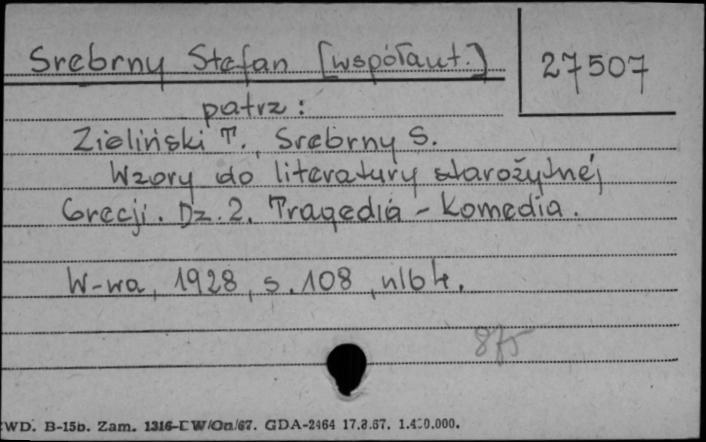 Srebrny Stefan [współaut.]
27507
patrz:
Zieliński T., Srebrny S.
Wzory do literatury starożytnej
Grecji. Dz. 2. Tragedia - Komedia.
W-wa, 1928, s. 108, nlb 4.
875
WD. B-15b. Zam. 1316-EW/On/67. GDA-2464 17.8.67. 1.450.000.